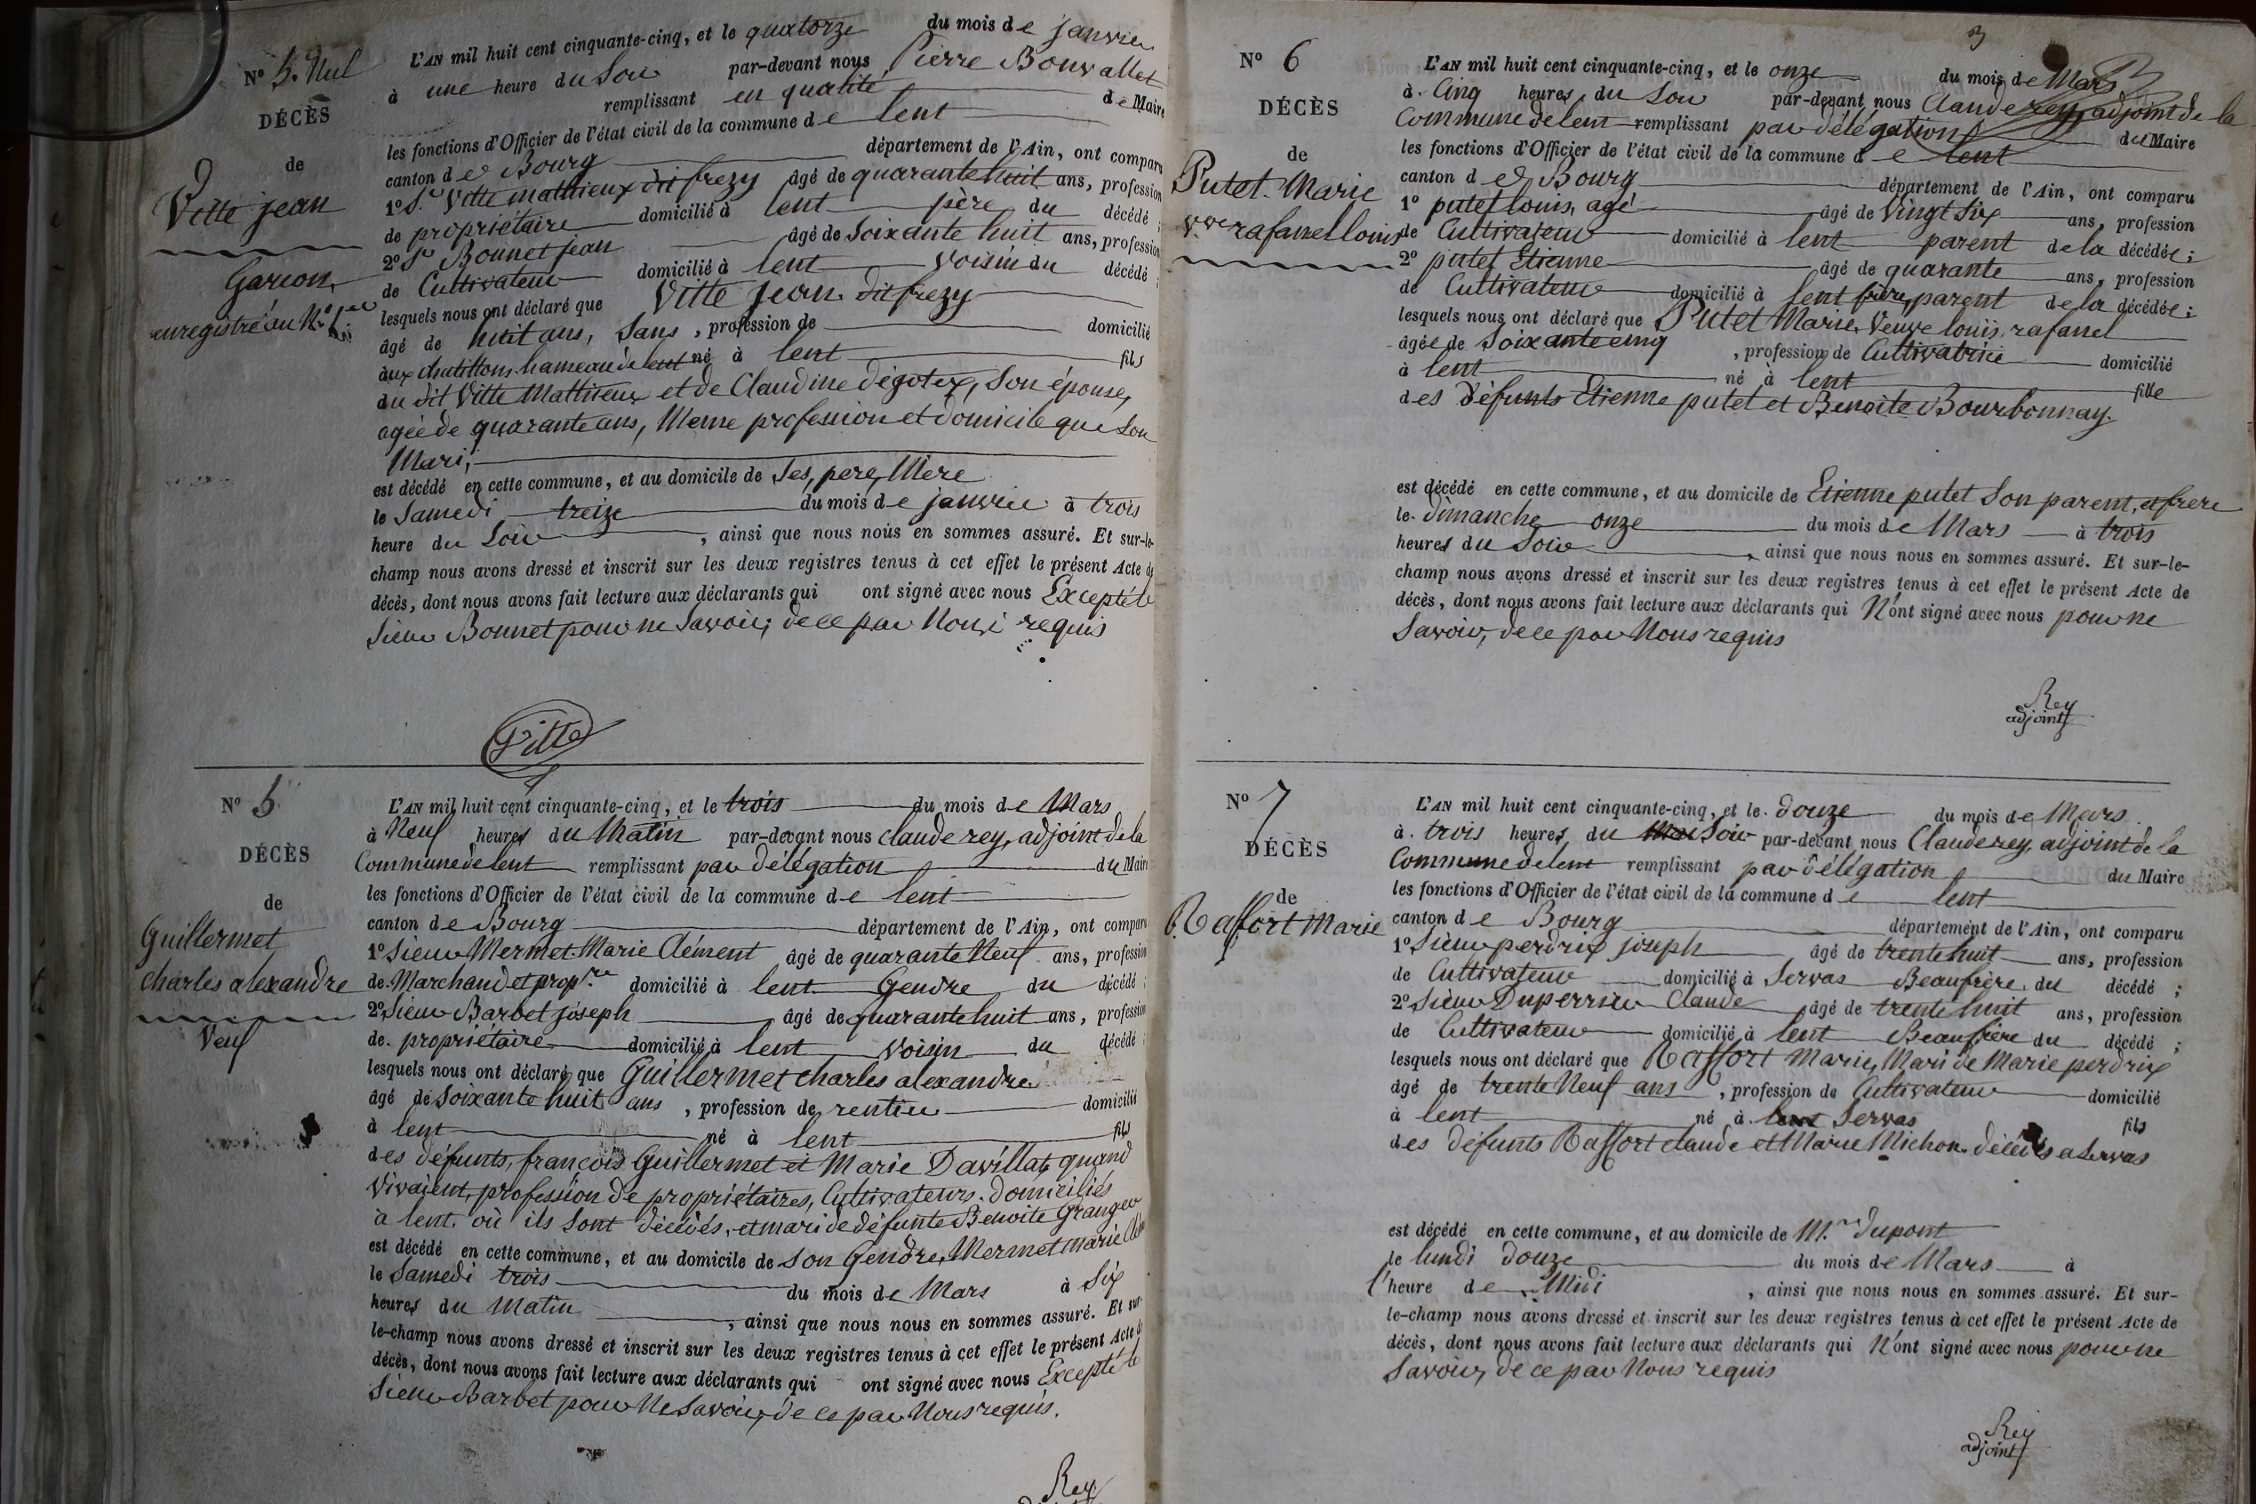 Nº 5. Nul
DÉCÈS
de
Vitte jean
Garcon
enregistré au Nº
L'AN mil huit cent cinquante-cinq, et le quatorze du mois de janvier
à une heure du Soir par-devant nous Pierre Bonvallet
remplissant en qualité de Maire
les fonctions d'Officier de l'état civil de la commune de lent
canton de Bourg département de l'Ain, ont comparu
1º Sr. Vitte mathieux dit frezy âgé de quarante huit ans, profession
de propriétaire domicilié à lent père du décédé ;
2º Sr Bonnet jean âgé de Soixante huit ans, profession
de Cultivateur domicilié à lent Voisin du décédé ;
lesquels nous ont déclaré que Vitte jean dit frezy
âgé de huit ans, Sans, profession de domicilié
aux chatillons hameau de lent né à lent fils
du dit Vitte Mathieux et de Claudine dégotex, Son épouse,
agée de quarante ans, Meme profession et domicile que Son
Mari,
est décédé en cette commune, et au domicile de Ses, pere, Mere
le Samedi treize du mois de janvier à trois
heure du Soir, ainsi que nous nous en sommes assuré. Et sur-le-
champ nous avons dressé et inscrit sur les deux registres tenus à cet effet le présent Acte de
décès, dont nous avons fait lecture aux déclarants qui ont signé avec nous Excepté le
Sieur Bonnet pour ne Savoir, de ce par Nous requis
Vitte
Nº 5
DÉCÈS
de
Guillermet
charles alexandre
Veuf
L'AN mil huit cent cinquante-cinq, et le trois du mois de Mars
à Neuf heures du Matin par-devant nous claude rey, adjoint de la
Commune de lent remplissant par délégation du Maire
les fonctions d'Officier de l'état civil de la commune de lent
canton de Bourg département de l'Ain, ont comparu
1º Sieur Mermet Marie Clément âgé de quarante Neuf ans, profession
de Marchand et propre domicilié à lent Gendre du décédé ;
2º Sieur Barbet joseph âgé de quarante huit ans, profession
de propriétaire domicilié à lent Voisin du décédé ;
lesquels nous ont déclaré que Guillermet charles alexandre
âgé de Soixante huit ans, profession de rentier domicilié
à lent né à lent fils
des défunts, françois Guillermet et Marie Davillat, quand
Vivaient, profession de propriétaires, Cultivateurs. domiciliés
a lent. où ils Sont décédés, et mari de défunte Benoite Granger
est décédé en cette commune, et au domicile de son Gendre, Mermet marie
le Samedi trois du mois de Mars à Six
heures du Matin, ainsi que nous nous en sommes assuré. Et sur-
le-champ nous avons dressé et inscrit sur les deux registres tenus à cet effet le présent Acte de
décès, dont nous avons fait lecture aux déclarants qui ont signé avec nous Excepté le
Sieur Barbet pour Ne Savoir, de ce par Nous requis.
Rey
3
Nº 6
DÉCÈS
de
Putet. Marie
Vve rafanel louis
L'AN mil huit cent cinquante-cinq, et le onze du mois de Mars
à Cinq heures du Soir par-devant nous Claude rey, adjoint de la
Commune de lent remplissant par délégation du Maire
les fonctions d'Officier de l'état civil de la commune de lent
canton de Bourg département de l'Ain, ont comparu
1º putet louis, agé âgé de Vingt Six ans, profession
de Cultivateur domicilié à lent parent de la décédée ;
2º putet Etienne âgé de quarante ans, profession
de Cultivateur domicilié à lent frère, parent de la décédée ;
lesquels nous ont déclaré que Putet Marie, Veuve louis rafanel
âgée de Soixante cinq, profession de Cultivatrice domicilié
à lent né à lent fille
des défunts Etienne putet et Benoite Bourbonnay.
est décédé en cette commune, et au domicile de Etienne putet Son parent, et frere
le dimanche onze du mois de Mars à trois
heures du Soir, ainsi que nous nous en sommes assuré. Et sur-le-
champ nous avons dressé et inscrit sur les deux registres tenus à cet effet le présent Acte de
décès, dont nous avons fait lecture aux déclarants qui N'ont signé avec nous pour ne
Savoir, de ce par Nous requis
Rey
adjoint
Nº 7
DÉCÈS
de
Raffort Marie
L'AN mil huit cent cinquante-cinq, et le douze du mois de Mars
à trois heures du Soir par-devant nous Claude rey, adjoint de la
Commune de lent remplissant par délégation du Maire
les fonctions d'Officier de l'état civil de la commune de lent
canton de Bourg département de l'Ain, ont comparu
1º Sieur perdrix joseph âgé de trente huit ans, profession
de Cultivateur domicilié à Servas Beaufrère du décédé ;
2º Sieur Duperrier Claude âgé de trente huit ans, profession
de Cultivateur domicilié à lent Beaufrère du décédé ;
lesquels nous ont déclaré que Raffort Marie, Mari de Marie perdrix
âgé de trente Neuf ans, profession de Cultivateur domicilié
à lent né à lent Servas fils
des défunts Raffort claude et Marie Michon. décédés a Servas
est décédé en cette commune, et au domicile de Mr. dupont
le lundi douze du mois de Mars à
l'heure de Midi, ainsi que nous nous en sommes assuré. Et sur-
le-champ nous avons dressé et inscrit sur les deux registres tenus à cet effet le présent Acte de
décès, dont nous avons fait lecture aux déclarants qui N'ont signé avec nous pour ne
Savoir, de ce par Nous requis
Rey
adjoint